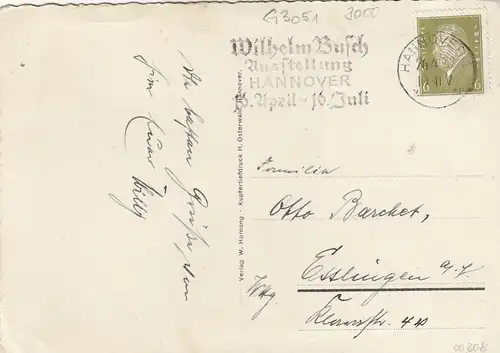 G3051 3000
Wilhelm Busch
Ausstellung
HANNOVER
April - 16. Juli
HANNOVER
6 6
Die besten Grüße von
Euer Willy
Verlag W. Hornung - Kupfertiefdruck H. Osterwald, Hannover.
Familie
Otto Barchet,
Esslingen a/N
Wttg.